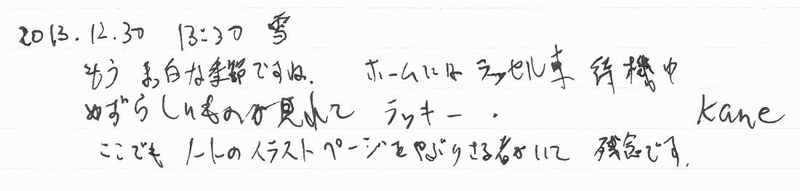 2013.12.30 13:30 雪
もう真白な季節ですね. ホームにはラッセル車待機中
めずらしいものが見れてラッキー. Kane
ここでもノートのイラストページをやぶりさる者がいて残念です.